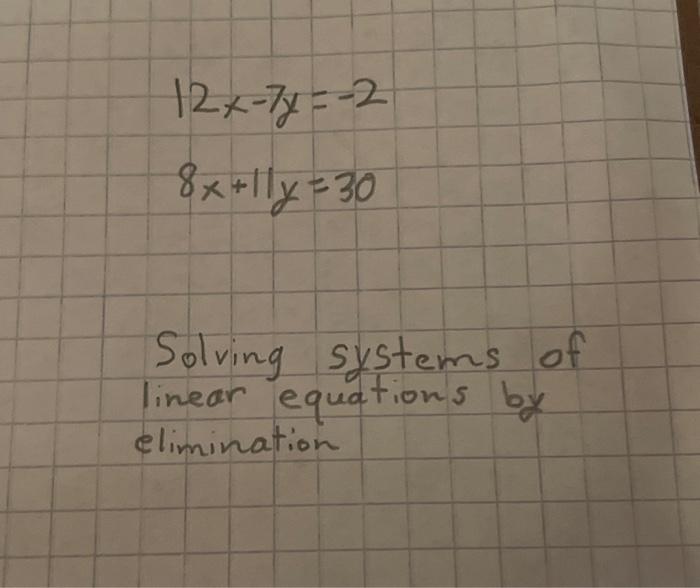 12x-7y=-2
8x+11y=30
Solving systems of
linear equations by
elimination